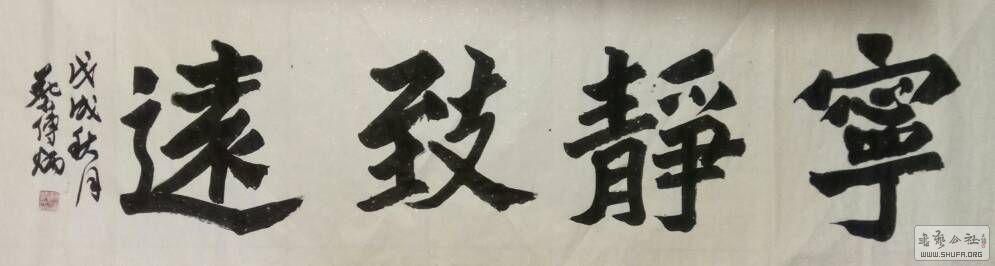 寧靜致遠
戊戌秋月
蔡傳
書藝公社
WWW.SHUFA.ORG